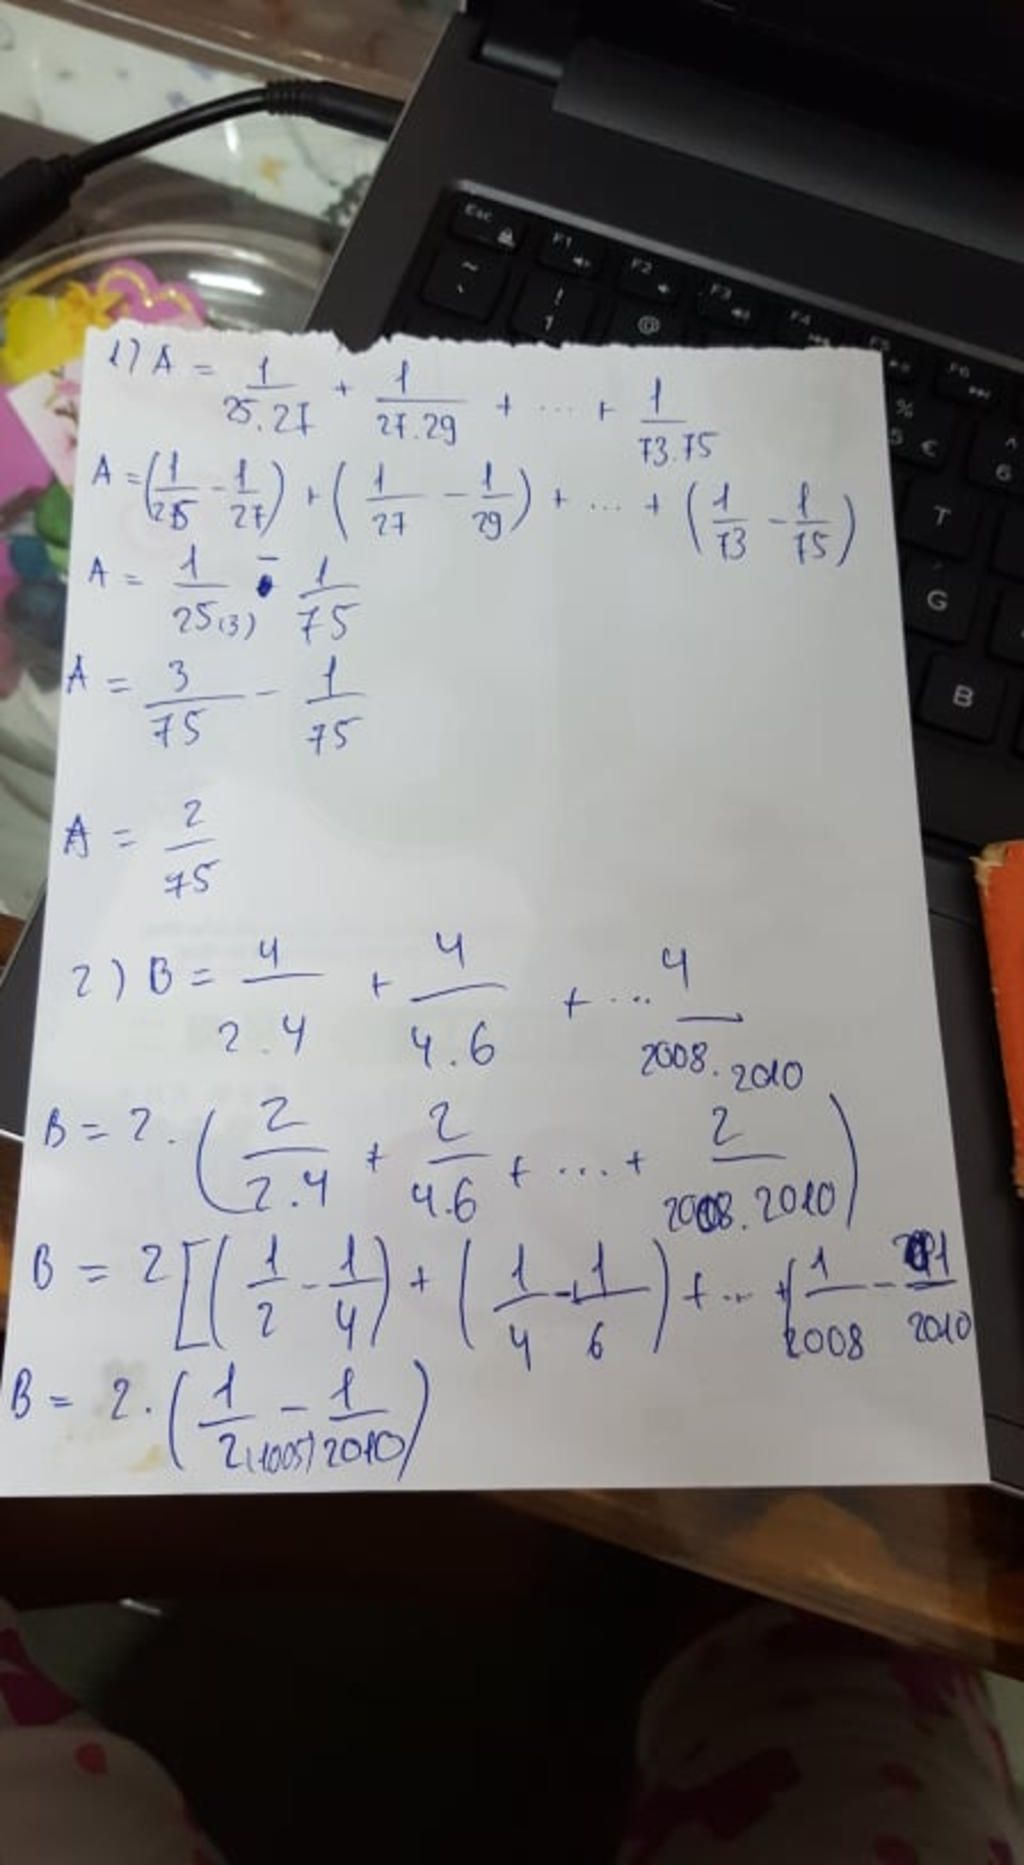 Esc
F1
F2
F3
F4
F5
F6
~
!
1
@
%
5 €
^
6
T
G
B
1) A = 1/25.27 + 1/27.29 + ... + 1/73.75
A = (1/25 - 1/27) + (1/27 - 1/29) + ... + (1/73 - 1/75)
A = 1/25(3) - 1/75
A = 3/75 - 1/75
A = 2/75
2) B = 4/2.4 + 4/4.6 + ... 4/2008.2010
B = 2. (2/2.4 + 2/4.6 + ... + 2/2008.2010)
B = 2 [(1/2 - 1/4) + (1/4 - 1/6) + ... + (1/2008 - 1/2010
B = 2. (1/2(1005) - 1/2010)